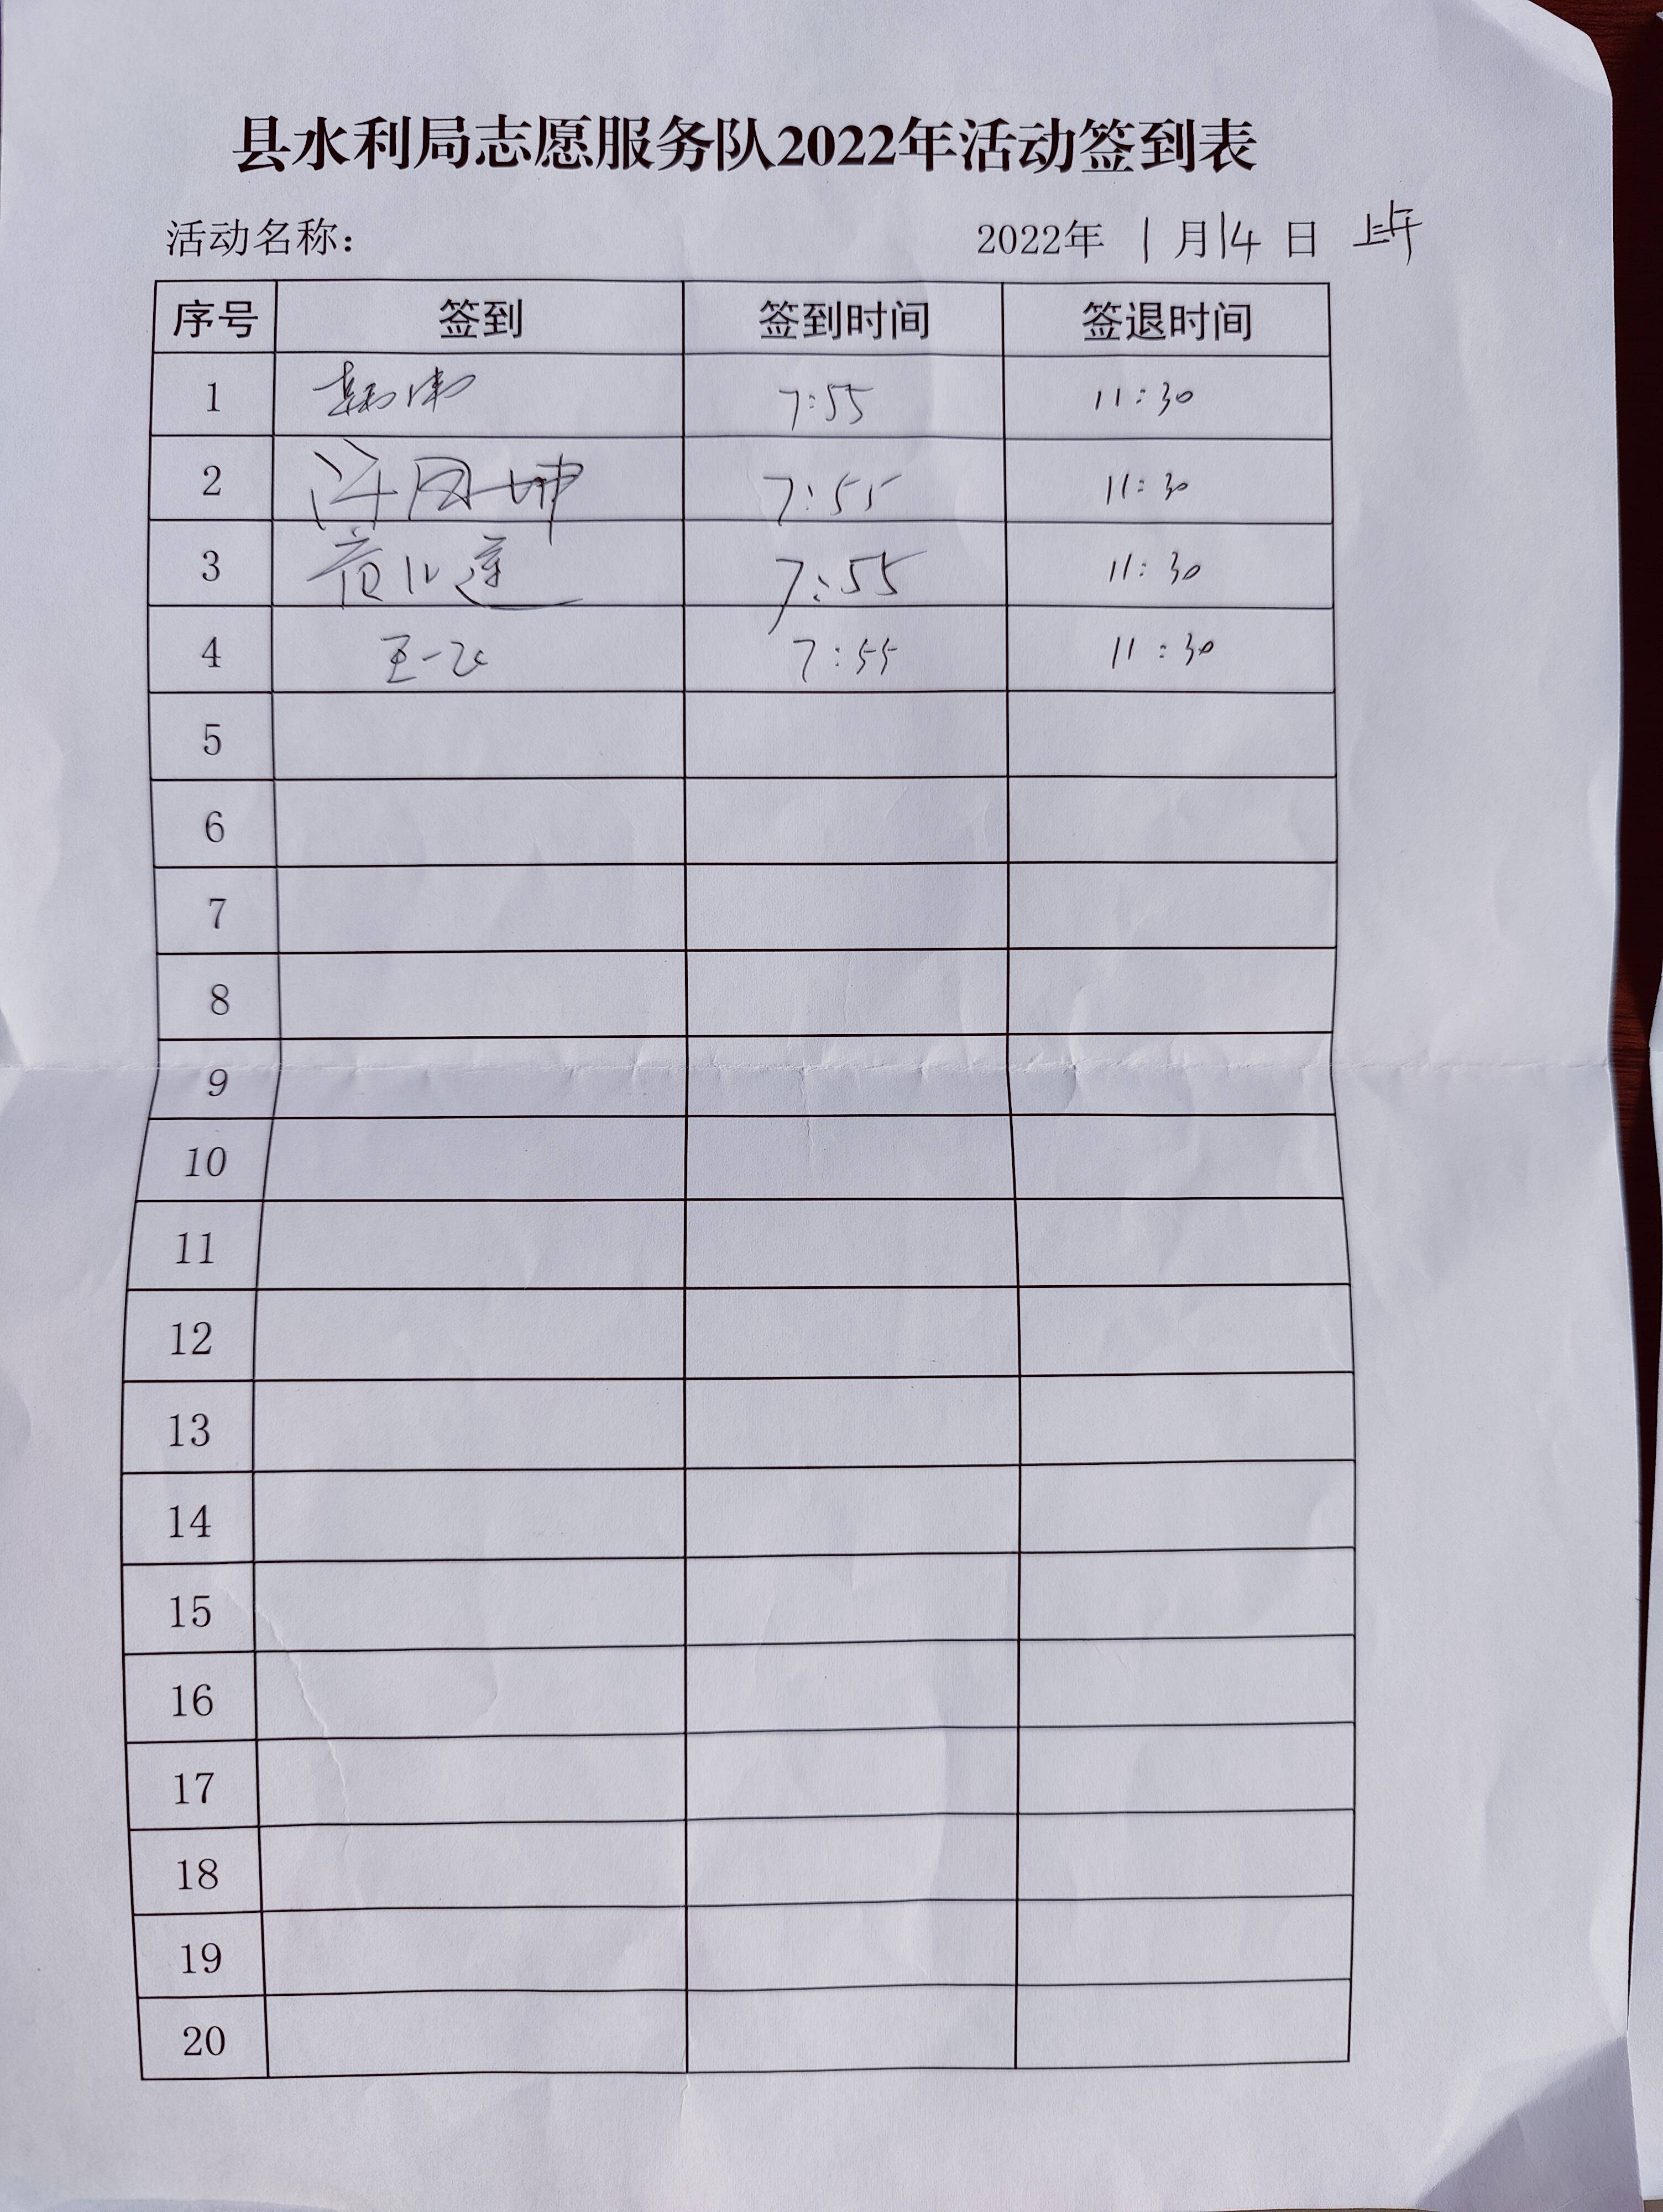 县水利局志愿服务队2022年活动签到表
活动名称： 2022年 1 月 14 日 上午
序号 签到 签到时间 签退时间
1 韩伟 7:55 11:30
2 许凤坤 7:55 11:30
3 7:55 11:30
4 王一 7:55 11:30
5
6
7
8
9
10
11
12
13
14
15
16
17
18
19
20